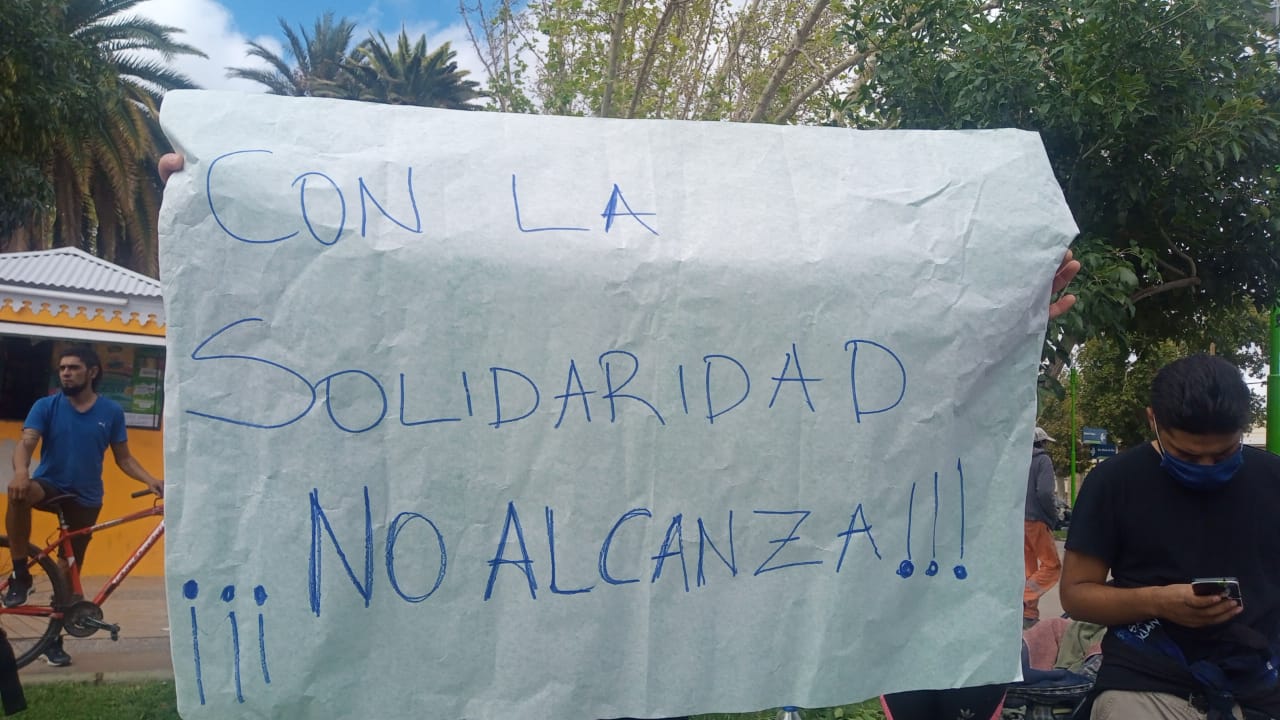 CON LA
SOLIDARIDAD
¡¡¡NO ALCANZA!!!